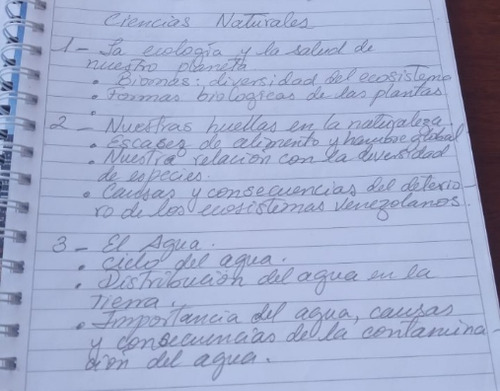 Ciencias Naturales
1- La ecología y la salud de
nuestro planeta
• Biomas: diversidad del ecosistema
• Formas biologicas de las plantas
•
2- Nuestras huellas en la naturaleza.
• Escasez de alimento y hambre global
• Nuestra relacion con la diversidad
de especies.
• Causas y consecuencias del deterio-
ro de los ecosistemas venezolanos.
3- El Agua.
• Ciclo del agua.
• Distribución del agua en la
Tierra.
• Importancia del agua, causas
y consecuencias de la contamina
ción del agua.